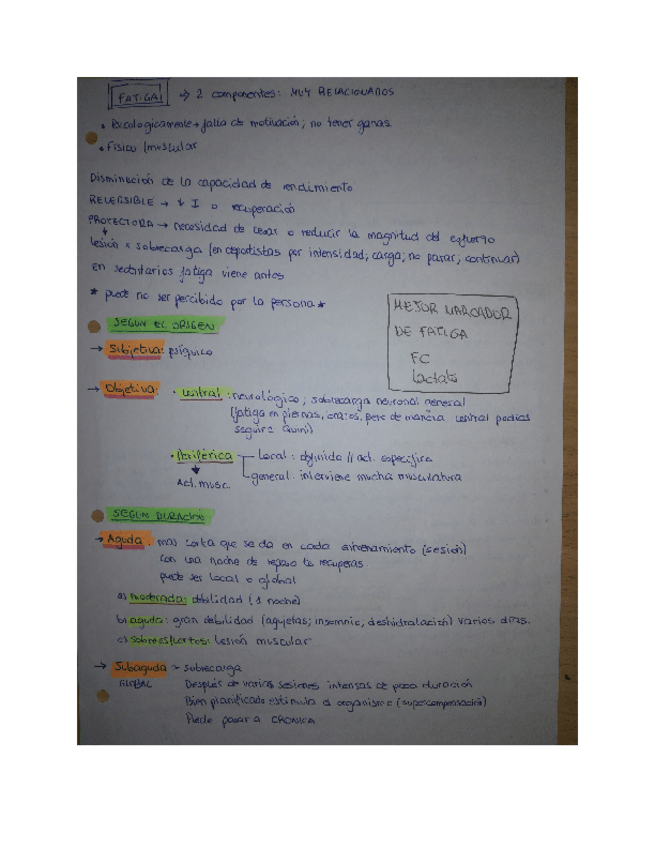 FATIGA → 2 componentes: MUY RELACIONADOS
• Psicologicamente → falta de motivación; no tener ganas
• Físico / muscular
Disminución de la capacidad de rendimiento
REVERSIBLE → ↓ I o recuperación
PROTECTORA → necesidad de cesar o reducir la magnitud del esfuerzo
lesión x sobrecarga (en deportistas por intensidad; carga; no parar, continuar)
en sedentarios fatiga viene antes
* puede no ser percibido por la persona *
MEJOR MARCADOR
DE FATIGA
FC
lactato
SEGUN EL ORIGEN
→ Subjetiva: psíquico
→ Objetiva: • central: neurológico; sobrecarga neuronal general
(fatiga en piernas, brazos, pero de manera central podias
seguir)
• Periférica — local: definida // act. especifica
↓ Act. musc. — general: interviene mucha musculatura
SEGUN DURACIÓN
→ Aguda: mas corta que se da en cada entrenamiento (sesión)
con una noche de reposo te recuperas
puede ser local o global
a) moderada: debilidad (1 noche)
b) aguda: gran debilidad (agujetas; insomnio, deshidratación) varios días.
c) sobreesfuertos: Lesión muscular
→ Subaguda → sobrecarga
GLOBAL Después de varias sesiones intensas de poca duración
Bien planificado estimula el organismo (supercompensación)
Puede pasar a CRÓNICA